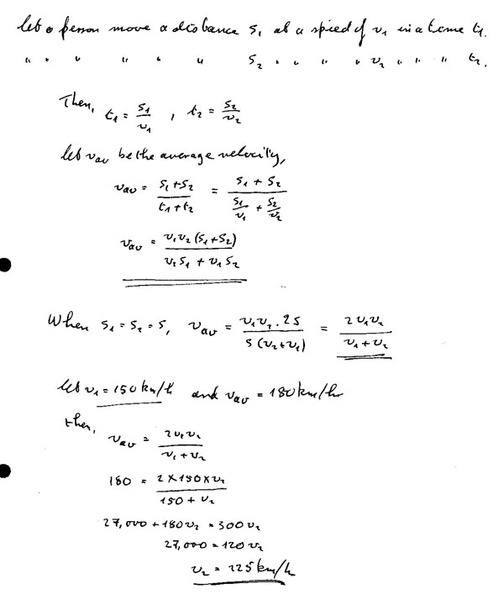 Let a person move a distance S₁ at a speed of v₁ in a time t₁.
" " " " " " S₂ " " " " v₂ " " " t₂.
Then, t₁ = S₁/v₁ , t₂ = S₂/v₂
let vav be the average velocity,
vav = (S₁+S₂)/(t₁+t₂) = (S₁+S₂)/(S₁/v₁ + S₂/v₂)
vav = v₁v₂(S₁+S₂)/(v₂S₁ + v₁S₂)
When S₁ = S₂ = S, vav = v₁v₂ · 2S/S(v₂+v₁) = 2v₁v₂/(v₁+v₂)
let v₁ = 150 km/h and vav = 180 km/hr
then,
vav = 2v₁v₂/(v₁+v₂)
180 = 2×150×v₂/(150 + v₂)
27,000 + 180v₂ = 300v₂
27,000 = 120v₂
v₂ = 225 km/h